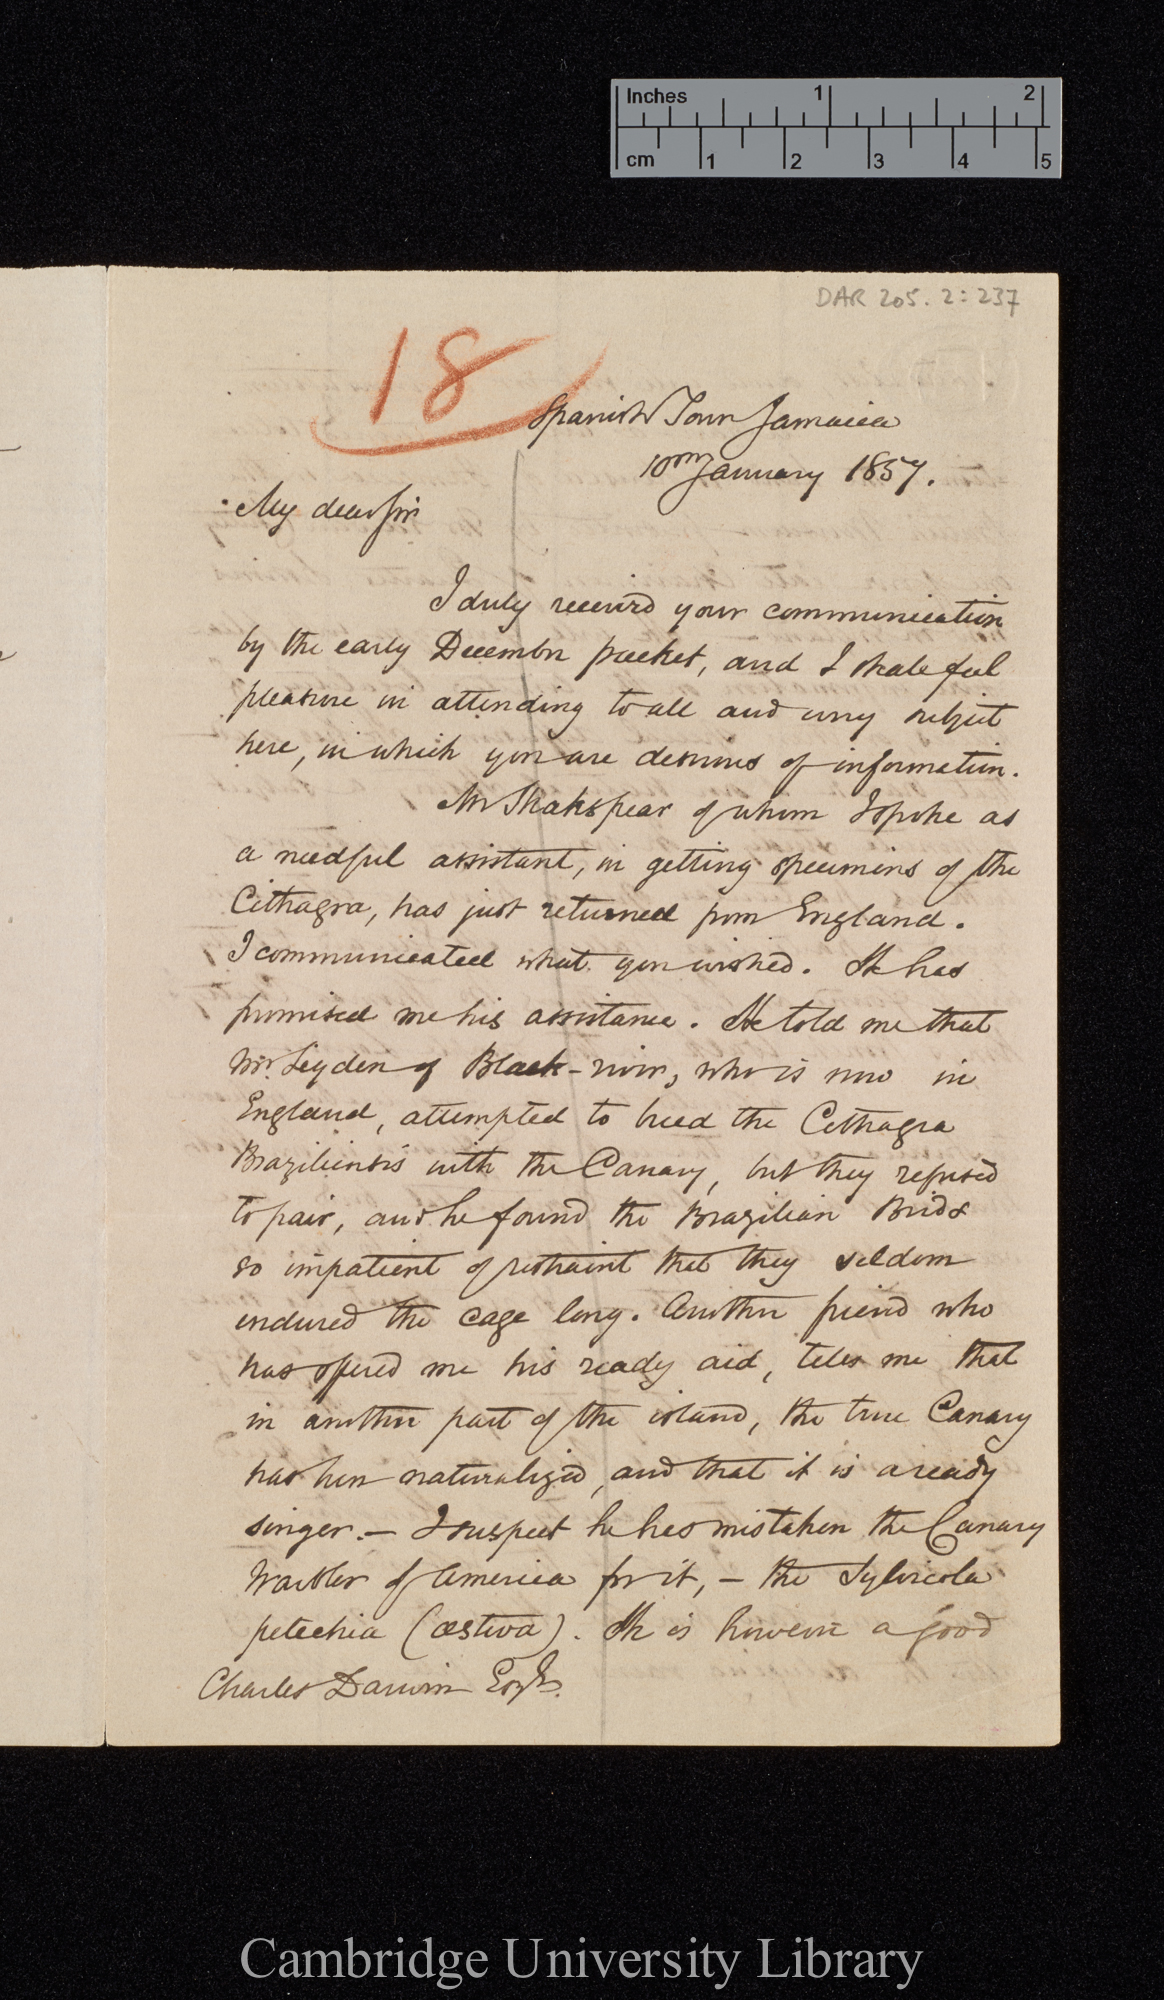 Inches 1 2
cm 1 2 3 4 5
DAR 205. 2: 237
18
Spanish Town Jamaica
10th January 1857.
My dear Sir
I duly received your communication
by the early December packet, and I shall feel
pleasure in attending to all and every subject
here, in which you are desirous of information.
Mr Shakspear of whom I spoke as
a needful assistant, in getting specimens of the
Cithagra, has just returned from England.
I communicated what you wished. He has
promised me his assistance. He told me that
Mr. Leyden of Black-river, who is now in
England, attempted to breed the Cithagra
Braziliensis with the Canary, but they refused
to pair, and he found the Brazilian Birds
so impatient of restraint that they seldom
endured the cage long. Another friend who
has offered me his ready aid, tells me that
in another part of the island, the true Canary
has been naturalized, and that it is a ready
singer. — I suspect he has mistaken the Canary
Warbler of America for it, — the Sylvicola
petechia (æstiva). It is however a good
Charles Darwin Esqre.
Cambridge University Library